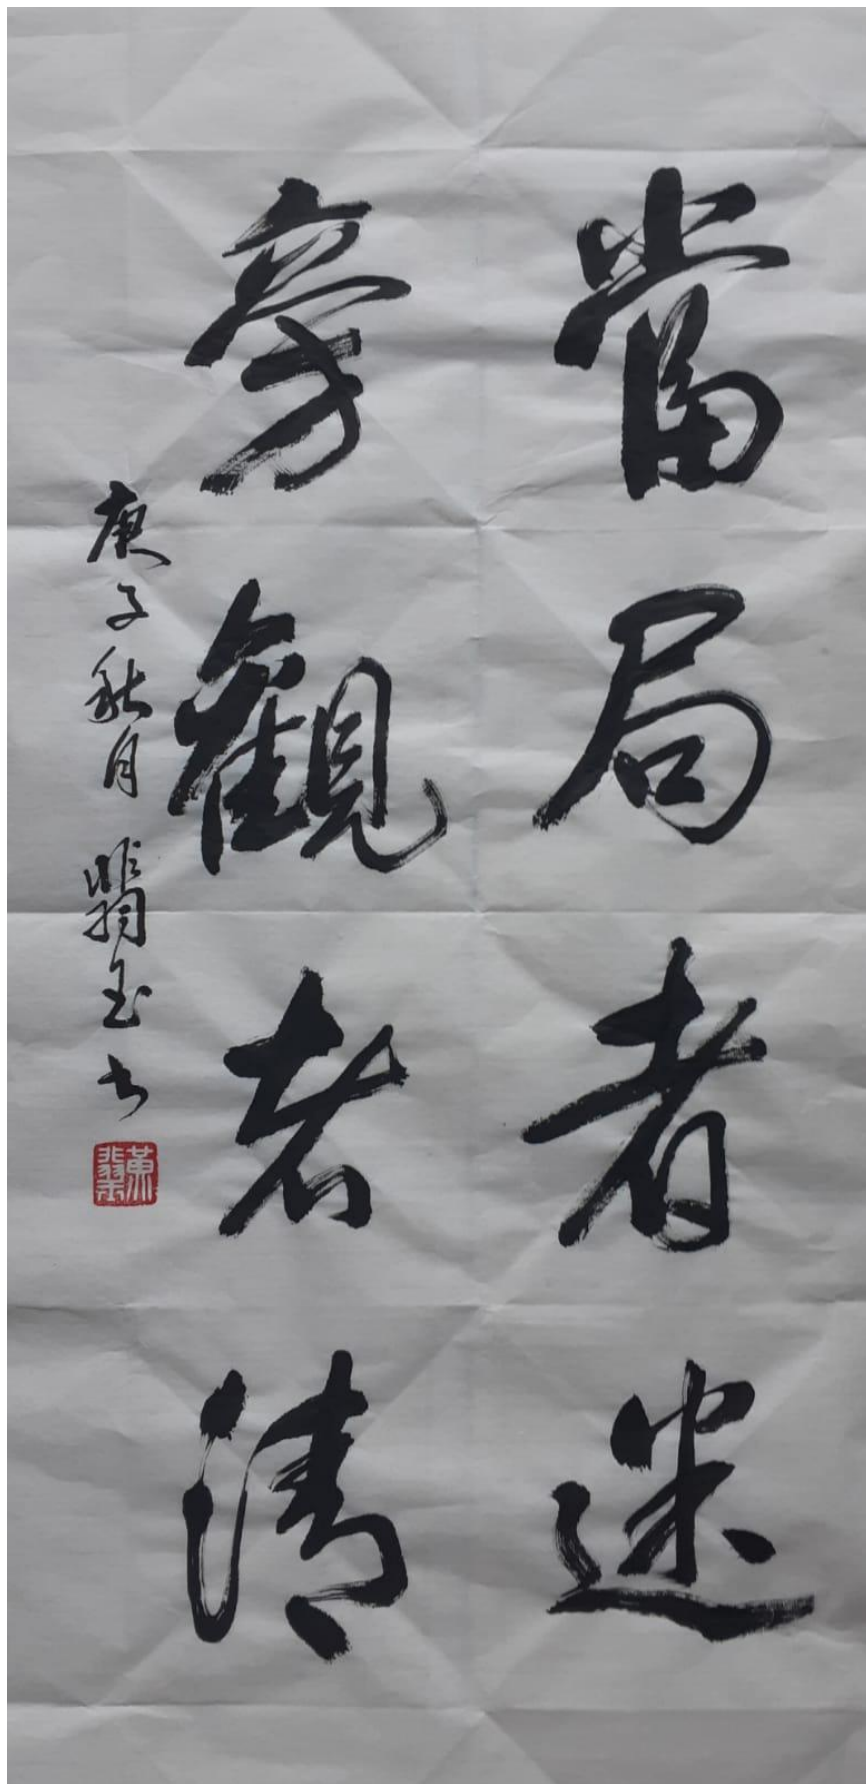 當局者迷
旁觀者清
庚子秋月 翡玉书
黄翡玉